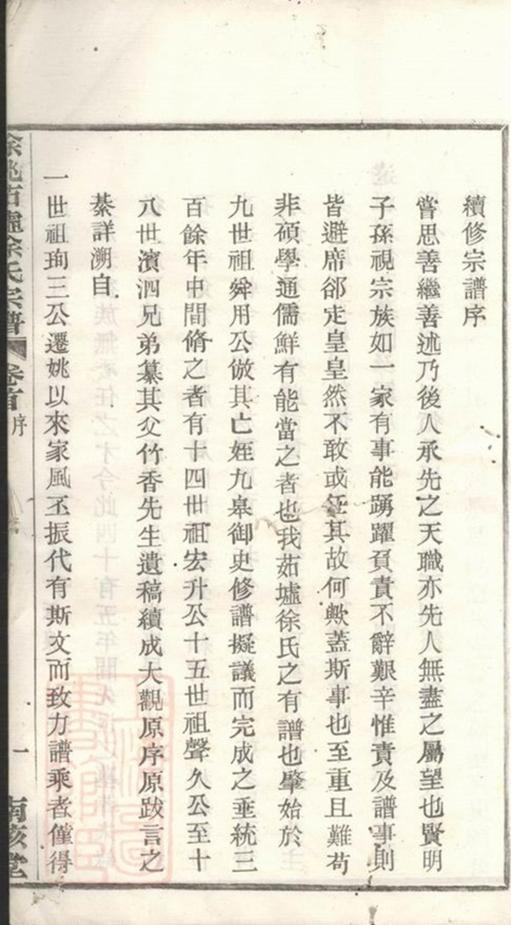 續修宗譜序
嘗思善繼善述乃後人承先之天職亦先人無盡之屬望也賢明
子孫視宗族如一家有事能踴躍負責不辭艱辛惟責及譜事則
皆避席郤走皇皇然不敢或任其故何歟蓋斯事也至重且難苟
非碩學通儒鮮有能當之者也我茹墟徐氏之有譜也肇始於
九世祖舜用公倣其亡姪九皋御史修譜擬議而完成之垂統三
百餘年中間脩之者有十四世祖宏升公十五世祖聲久公至十
八世濱泗兄弟纂其父竹香先生遺稿續成大觀原序原跋言之
綦詳溯自
一世祖珣三公遷姚以來家風丕振代有斯文而致力譜乘者僅得
徐氏宗譜
卷首
序
一